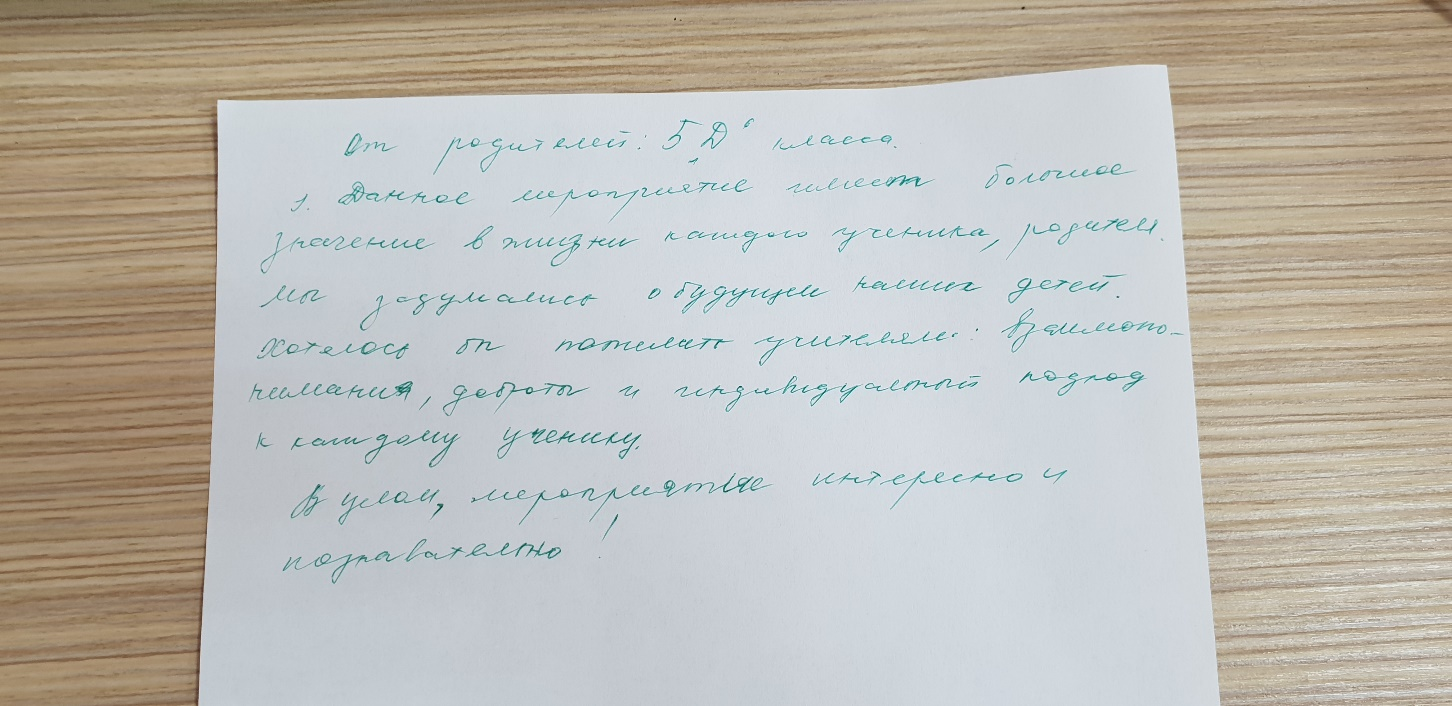 От родителей: 5 "Д" класса.
1. Данное мероприятие имеет большое
значение в жизни каждого ученика, родителя.
Мы задумались о будущем наших детей.
Хотелось бы пожелать учителям: взаимопо-
нимания, доброты и индивидуальный подход
к каждому ученику.
В целом, мероприятие интересно и
познавательно!